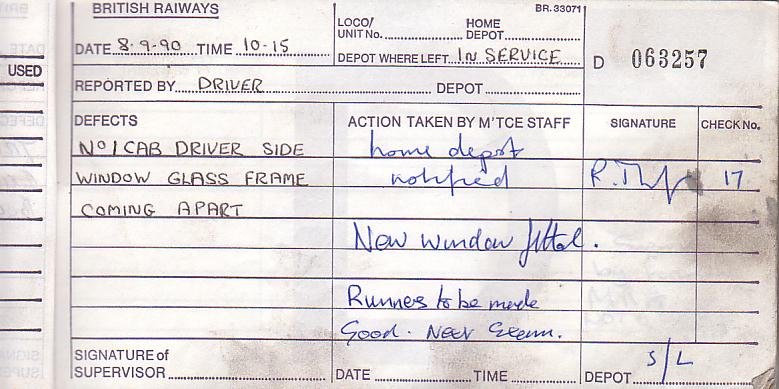 BRITISH RAIWAYS
BR. 33071
LOCO/ UNIT No. HOME DEPOT
DATE 8.9.90 TIME 10-15
DEPOT WHERE LEFT IN SERVICE
D 063257
USED
REPORTED BY DRIVER DEPOT
DEFECTS ACTION TAKEN BY M'TCE STAFF SIGNATURE CHECK No.
No 1 CAB DRIVER SIDE home depot
WINDOW GLASS FRAME notified R. 17
COMING APART
New window fitted.
Runners to be made
Good. Next Exam.
SIGNATURE of SUPERVISOR DATE TIME DEPOT S/L